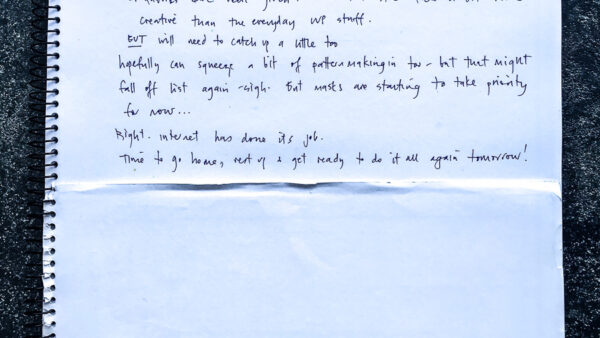 creative than the everyday WP stuff.
BUT will need to catch up a little too
hopefully can squeeze a bit of patternmaking in too - but that might
fall off list again -sigh. But masks are starting to take priority
for now...
Right. internet has done its job.
Time to go home, rest up & get ready to do it all again tomorrow!